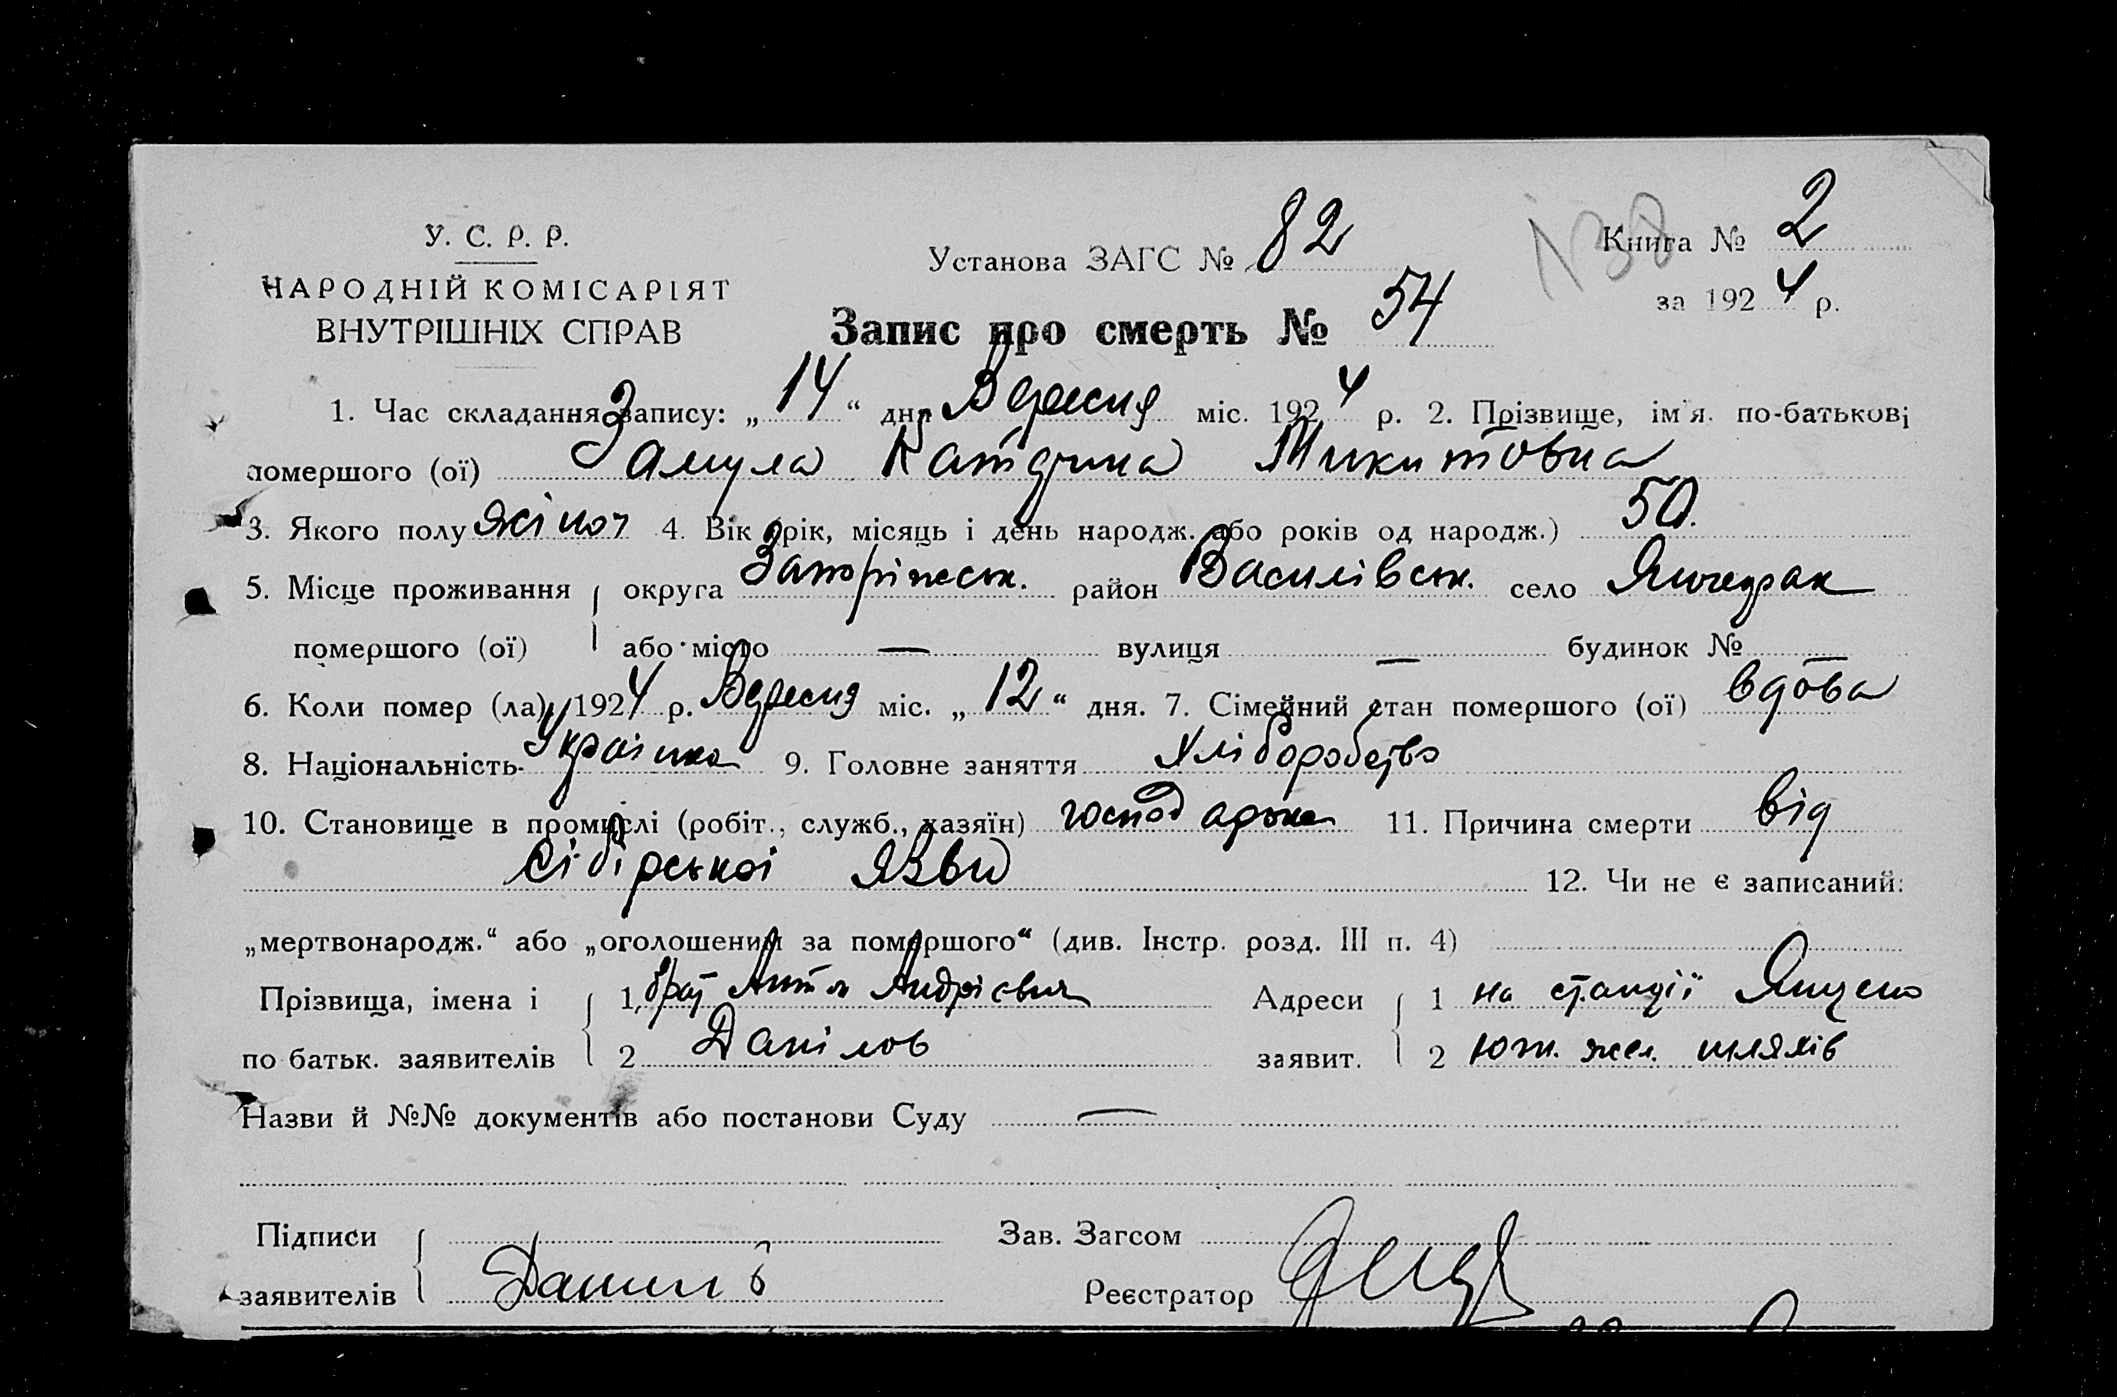 У. С. Р. Р.
НАРОДНІЙ КОМІСАРІЯТ
ВНУТРІШНІХ СПРАВ
Установа ЗАГС № 82
N38
Книга № 2
за 1924 р.
Запис про смерть № 54
1. Час складання запису: „14“ дня Вересня міс. 1924 р. 2. Прізвище, ім'я по-батькові
помершого (ої) Замула Катерина Микитовна
3. Якого полу жіноч 4. Вік (рік, місяць і день народж. або років од народж.) 50.
5. Місце проживання округа Запоріжськ. район Василівськ. село Янчекрак
помершого (ої) або місто — вулиця — будинок № —
6. Коли помер (ла) 1924 р. Вересня міс. „12“ дня. 7. Сімейний стан помершого (ої) вдова
8. Національність Українка 9. Головне заняття Хліборобство
10. Становище в промислі (робіт., служб., хазяїн) господарка 11. Причина смерти від
сібірської язви 12. Чи не є записаний:
„мертвонародж.“ або „оголошений за помершого“ (див. Інстр. розд. III п. 4)
Прізвища, імена і 1 брат Антон Андрієвич Адреси 1 на станції
по батьк. заявителів 2 Данілов заявит. 2 Юж. жел. шляхів
Назви й №№ документів або постанови Суду —
Підписи Зав. Загсом
заявителів Данилов Реєстратор